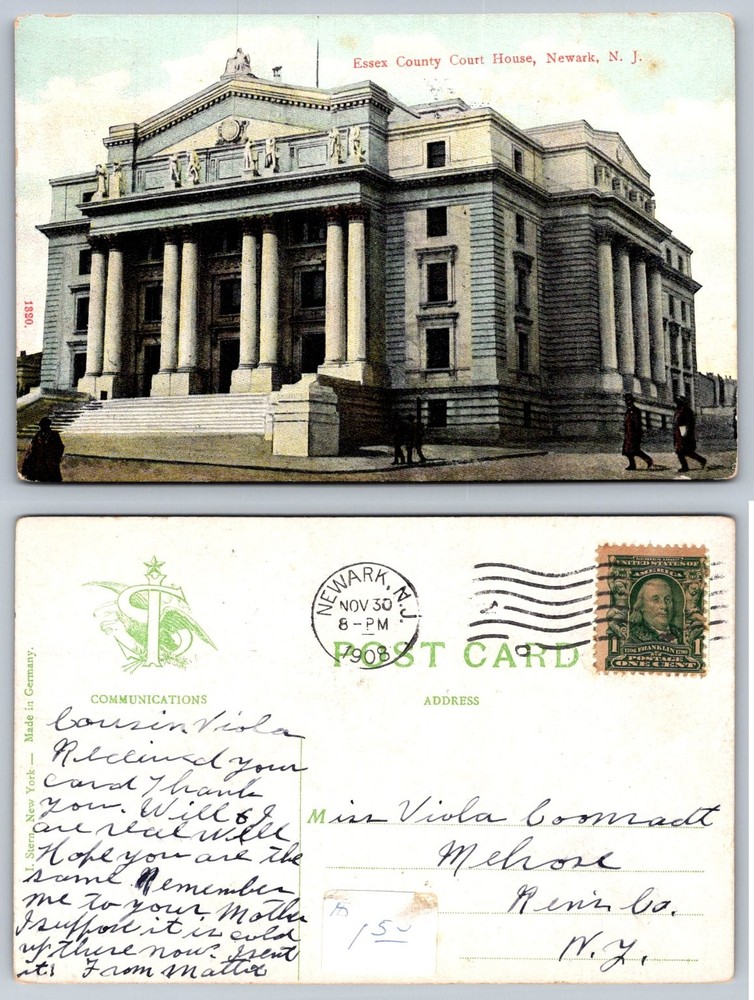 Essex County Court House, Newark, N. J.
1820.
J. Stern, New York — Made in Germany.
COMMUNICATIONS
NEWARK, N.J.
NOV 30
8 - PM
1908
POST CARD
ADDRESS
SERIES 1902
UNITED STATES OF
AMERICA
1 1706 FRANKLIN 1790 1
POSTAGE
ONE CENT
Cousin Viola
Received your
card Thank
you. Will & I
are real well
Hope you are the
same Remember
me to your Mother
I suppose it is cold
up there now. I sent
it! From Mattie
Miss Viola Coonradt
Melrose
Rens Co.
N. Y.
1 50